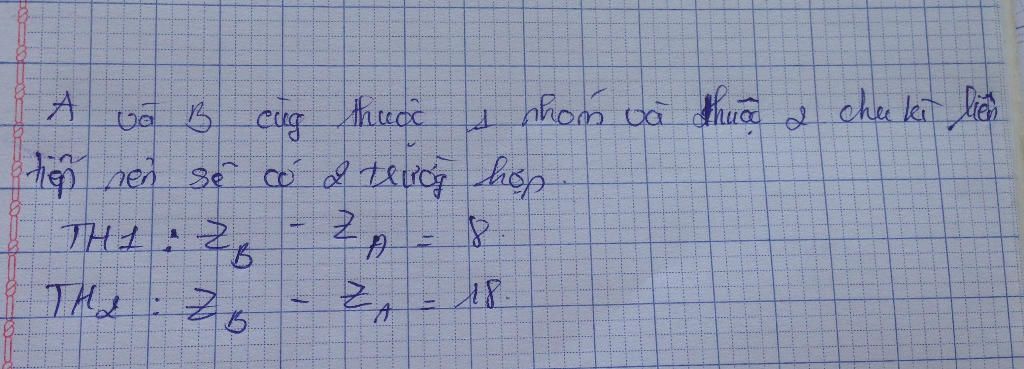 A và B cùng thuộc 1 nhóm và thuộc 2 chu kì liên
tiếp nên sẽ có 2 trường hợp.
TH1 : Z_B - Z_A = 8.
TH2 : Z_B - Z_A = 18.